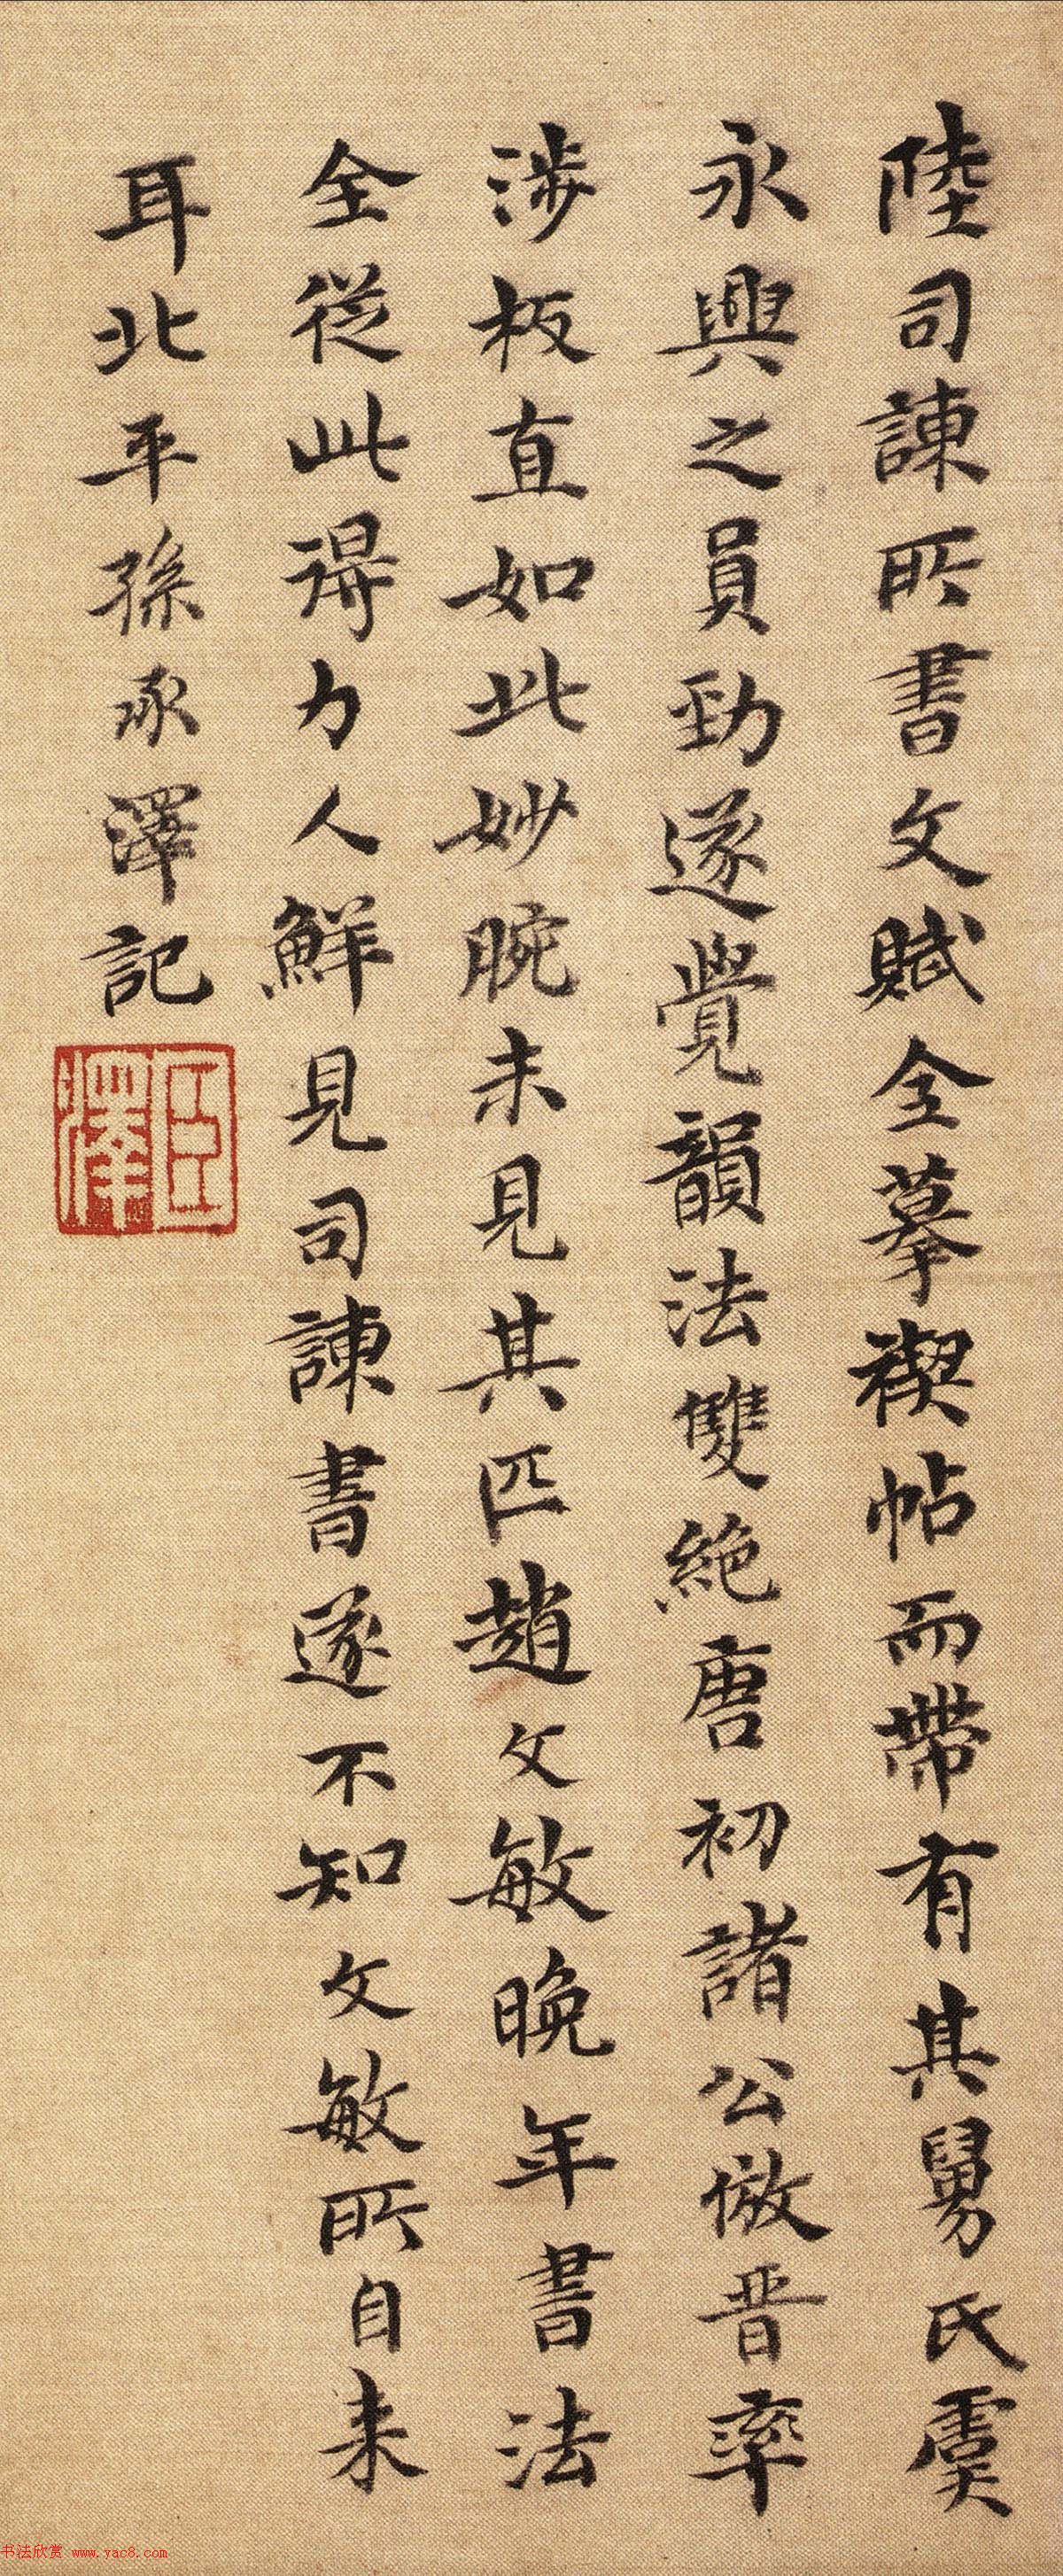 陸司諫所書文賦全摹禊帖而帶有其舅氏虞
永興之員勁遂覺韻法雙絶唐初諸公倣晋率
涉板直如此妙腕未見其匹趙文敏晚年書法
全從此得力人鮮見司諫書遂不知文敏所自来
耳北平孫承澤記
臣澤
书法欣赏 www.yac8.com